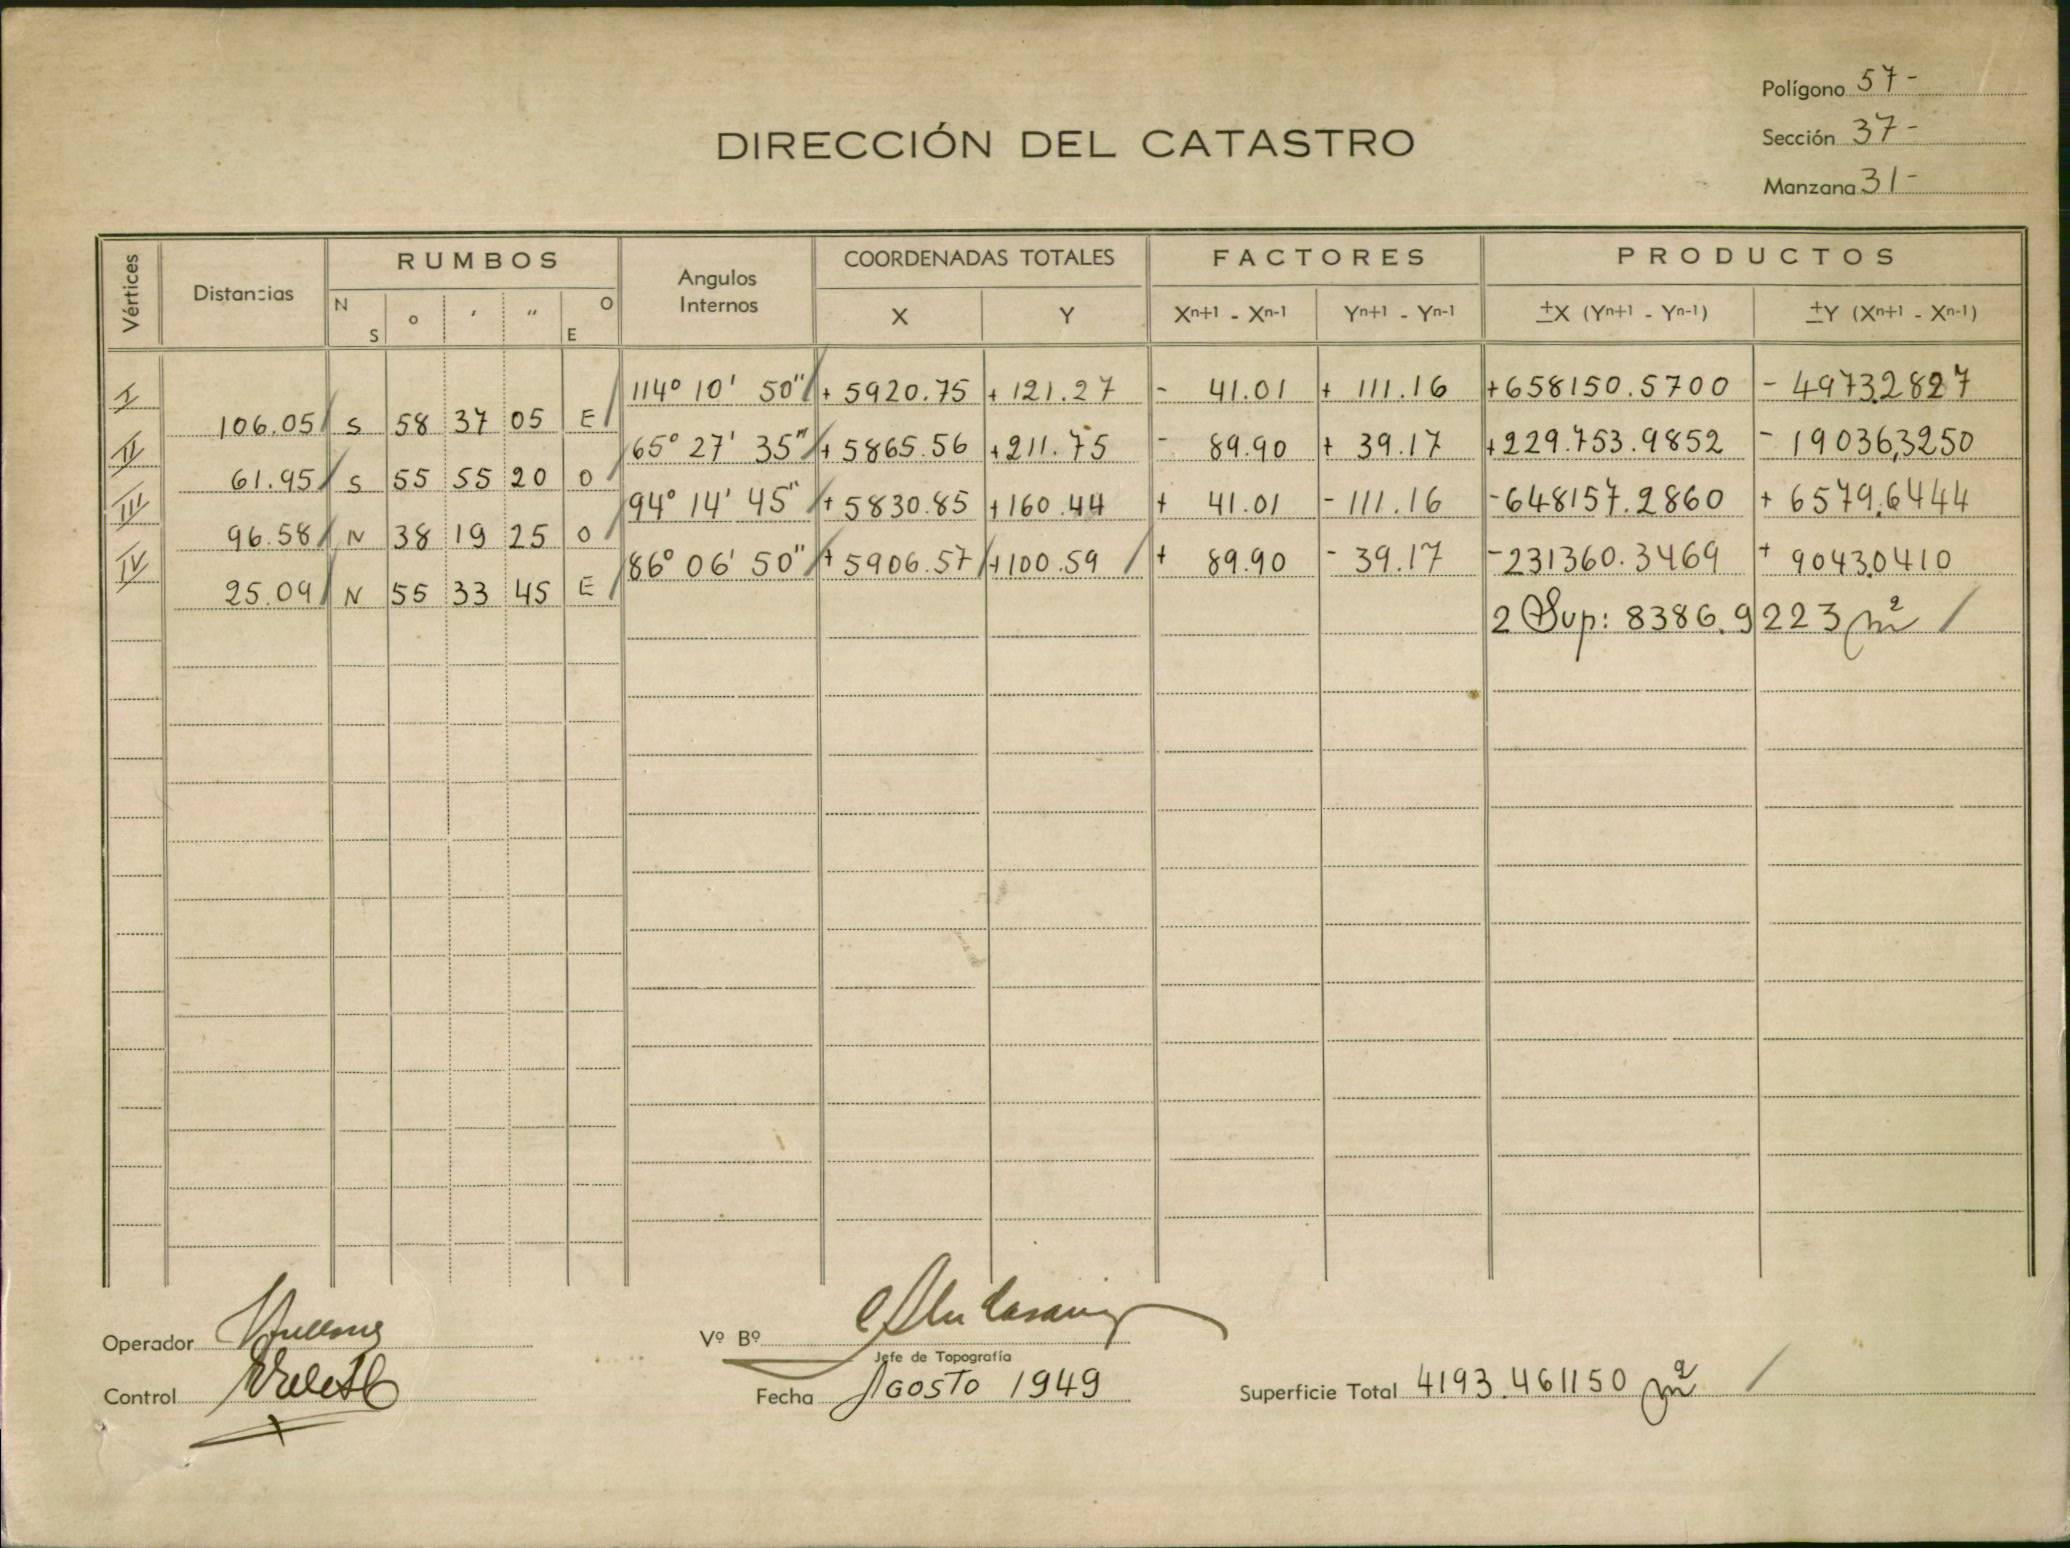 Polígono 57-
Sección 37-
Manzana 31-
DIRECCIÓN DEL CATASTRO
Vértices Distancias RUMBOS Angulos Internos COORDENADAS TOTALES FACTORES PRODUCTOS
N S ° ' " O E X Y Xn+1 - Xn-1 Yn+1 - Yn-1 ±X (Yn+1 - Yn-1) ±Y (Xn+1 - Xn-1)
I 114° 10' 50" + 5920.75 + 121.27 - 41.01 + 111.16 +658150.5700 - 4973.2827
106.05 S 58 37 05 E
II 65° 27' 35" + 5865.56 +211.75 - 89.90 + 39.17 +229.753.9852 - 19036,3250
61.95 S 55 55 20 O
III 94° 14' 45" + 5830.85 +160.44 + 41.01 - 111.16 -648157.2860 + 6579.6444
96.58 N 38 19 25 O
IV 86° 06' 50" + 5906.57 +100.59 + 89.90 - 39.17 -231360.3469 + 9043.0410
25.09 N 55 33 45 E
2 Sup: 8386.9223 m²
Operador
Vº Bº
Jefe de Topografía
Control
Fecha AGOSTO 1949
Superficie Total 4193.461150 m²